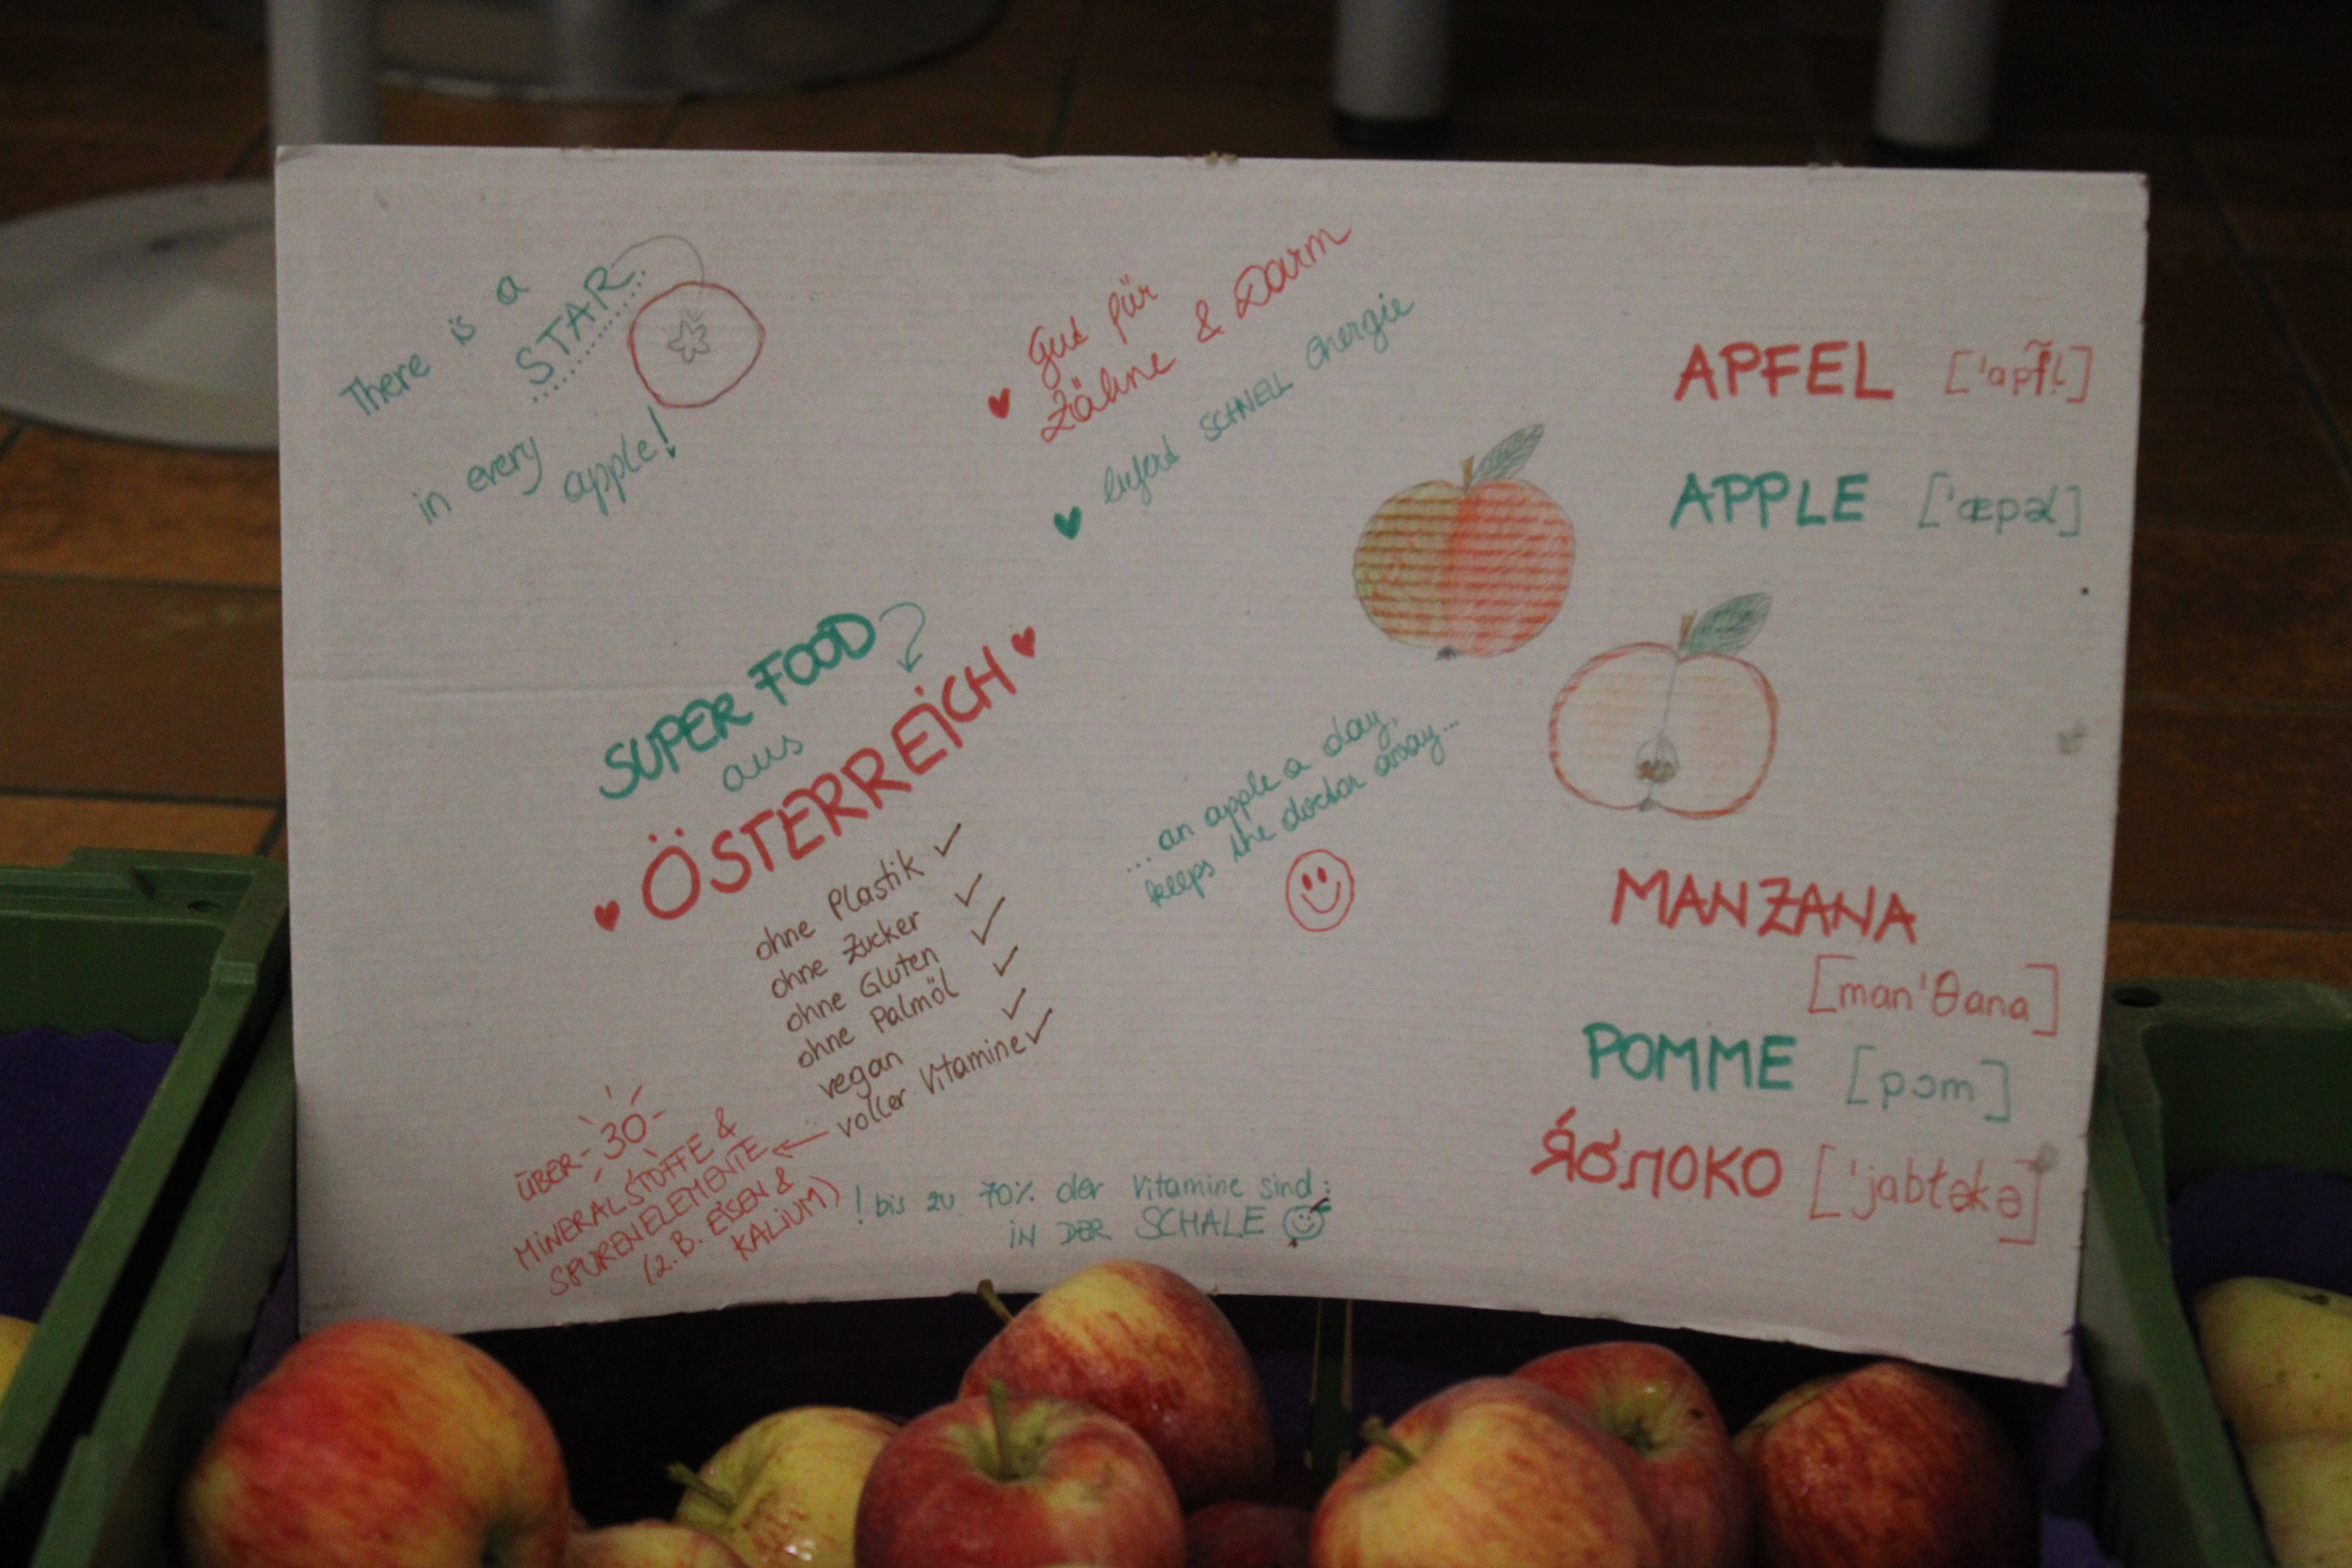 There is a
STAR
in every
apple!
♥ Gut für
Zähne & Darm
♥ liefert SCHNELL Energie
SUPER FOOD
aus
♥ ÖSTERREiCH ♥
ohne Plastik ✓
ohne Zucker ✓
ohne Gluten ✓
ohne Palmöl ✓
vegan ✓
voller Vitamine ✓
ÜBER 30
MiNERALSTOFFE &
SPURENELEMENTE
(z.B. EiSEN &
KALiUM)
! bis zu 70% der Vitamine sind:
iN DER SCHALE
...an apple a day,
keeps the doctor away...
APFEL ['apf͡l̩]
APPLE ['æpəl]
MANZANA
[man'θana]
POMME [pɔm]
Я́БЛОКО ['jabłəkə]